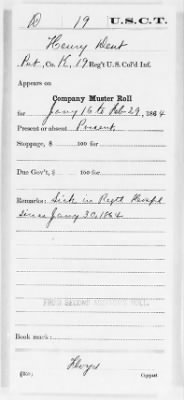 D 19 U.S.C.T.
Henry Dent
Pvt, Co. K, 19 Reg't U.S. Col'd Inf.
Appears on
Company Muster Roll
for Jany 16 to Feb 29, 1864
Present or absent Present
Stoppage, $ 100 for
Due Gov't, $ 100 for
Remarks: Sick in Regtl Hospl
since Jany 30, 1864
Book mark:
(358) Copyist